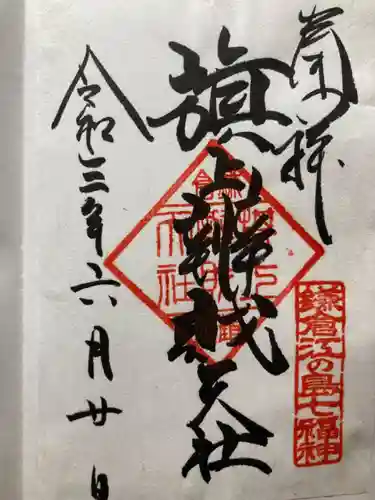 奉拝
旗上辨戝天社
鎌倉江の島七福神
令和三年六月廿日